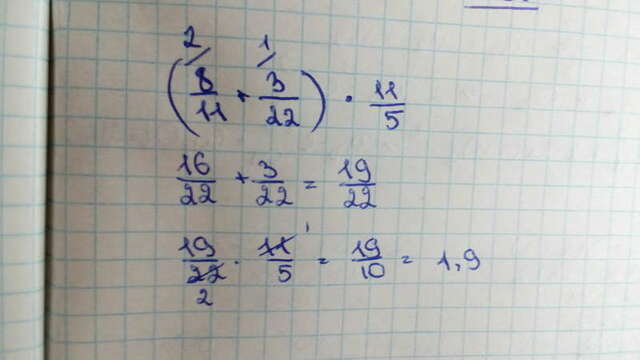 2 1
(8/11 + 3/22) · 11/5
16/22 + 3/22 = 19/22
19/22 · 11/5 = 19/10 = 1,9
1
2